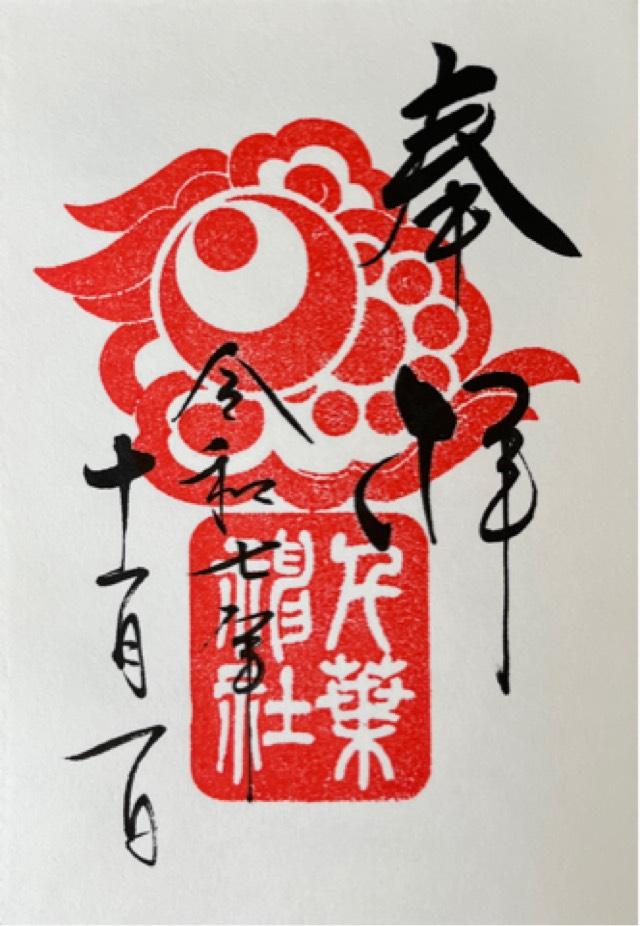 奉拝
令和七年
十一月一日
葉
社